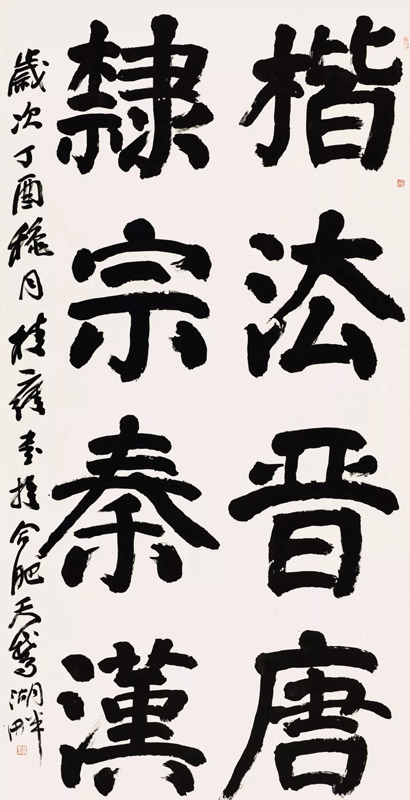 楷法晋唐
隸宗秦漢
歲次丁酉穐月桂雍書於合肥天鵝湖畔